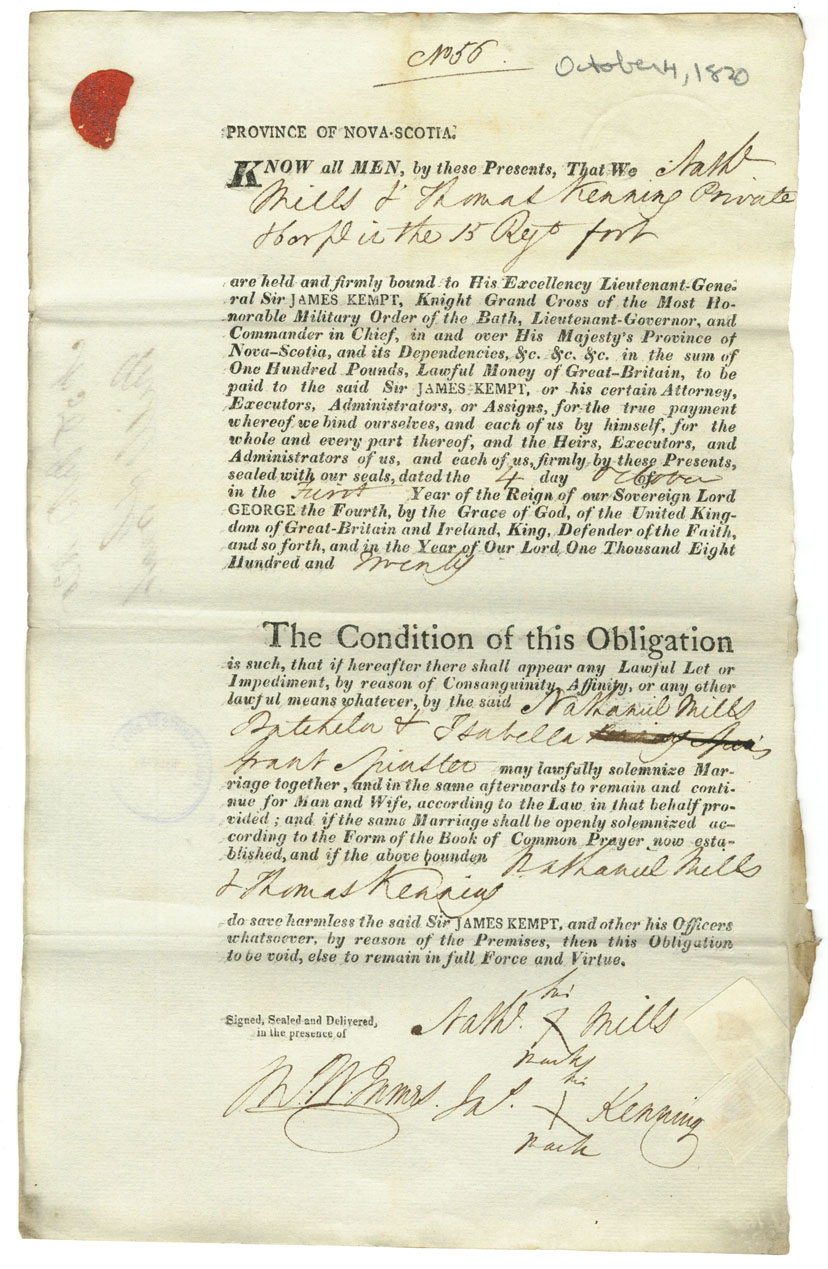 No 56.
October 4, 1820
PROVINCE OF NOVA-SCOTIA.
KNOW all MEN, by these Presents, That We Nathl
Mills & Thomas Kenning Private
in the 15 Regt
are held and firmly bound to His Excellency Lieutenant-Gene-
ral Sir JAMES KEMPT, Knight Grand Cross of the Most Ho-
norable Military Order of the Bath, Lieutenant-Governor, and
Commander in Chief, in and over His Majesty's Province of
Nova-Scotia, and its Dependencies, &c. &c. &c. in the sum of
One Hundred Pounds, Lawful Money of Great-Britain, to be
paid to the said Sir JAMES KEMPT, or his certain Attorney,
Executors, Administrators, or Assigns, for the true payment
whereof we bind ourselves, and each of us by himself, for the
whole and every part thereof, and the Heirs, Executors, and
Administrators of us, and each of us, firmly by these Presents,
sealed with our seals, dated the 4 day of October
in the First Year of the Reign of our Sovereign Lord
GEORGE the Fourth, by the Grace of God, of the United King-
dom of Great-Britain and Ireland, King, Defender of the Faith,
and so forth, and in the Year of Our Lord One Thousand Eight
Hundred and Twenty
The Condition of this Obligation
is such, that if hereafter there shall appear any Lawful Let or
Impediment, by reason of Consanguinity, Affinity, or any other
lawful means whatever, by the said Nathaniel Mills
Batchelor & Isabella
Grant Spinster may lawfully solemnize Mar-
riage together, and in the same afterwards to remain and conti-
nue for Man and Wife, according to the Law in that behalf pro-
vided ; and if the same Marriage shall be openly solemnized ac-
cording to the Form of the Book of Common Prayer now esta-
blished, and if the above bounden Nathaniel Mills
& Thomas Kenning
do save harmless the said Sir JAMES KEMPT, and other his Officers
whatsoever, by reason of the Premises, then this Obligation
to be void, else to remain in full Force and Virtue.
Signed, Sealed and Delivered,
in the presence of
his
Nathl. X Mills
mark
his
X Kenning
mark